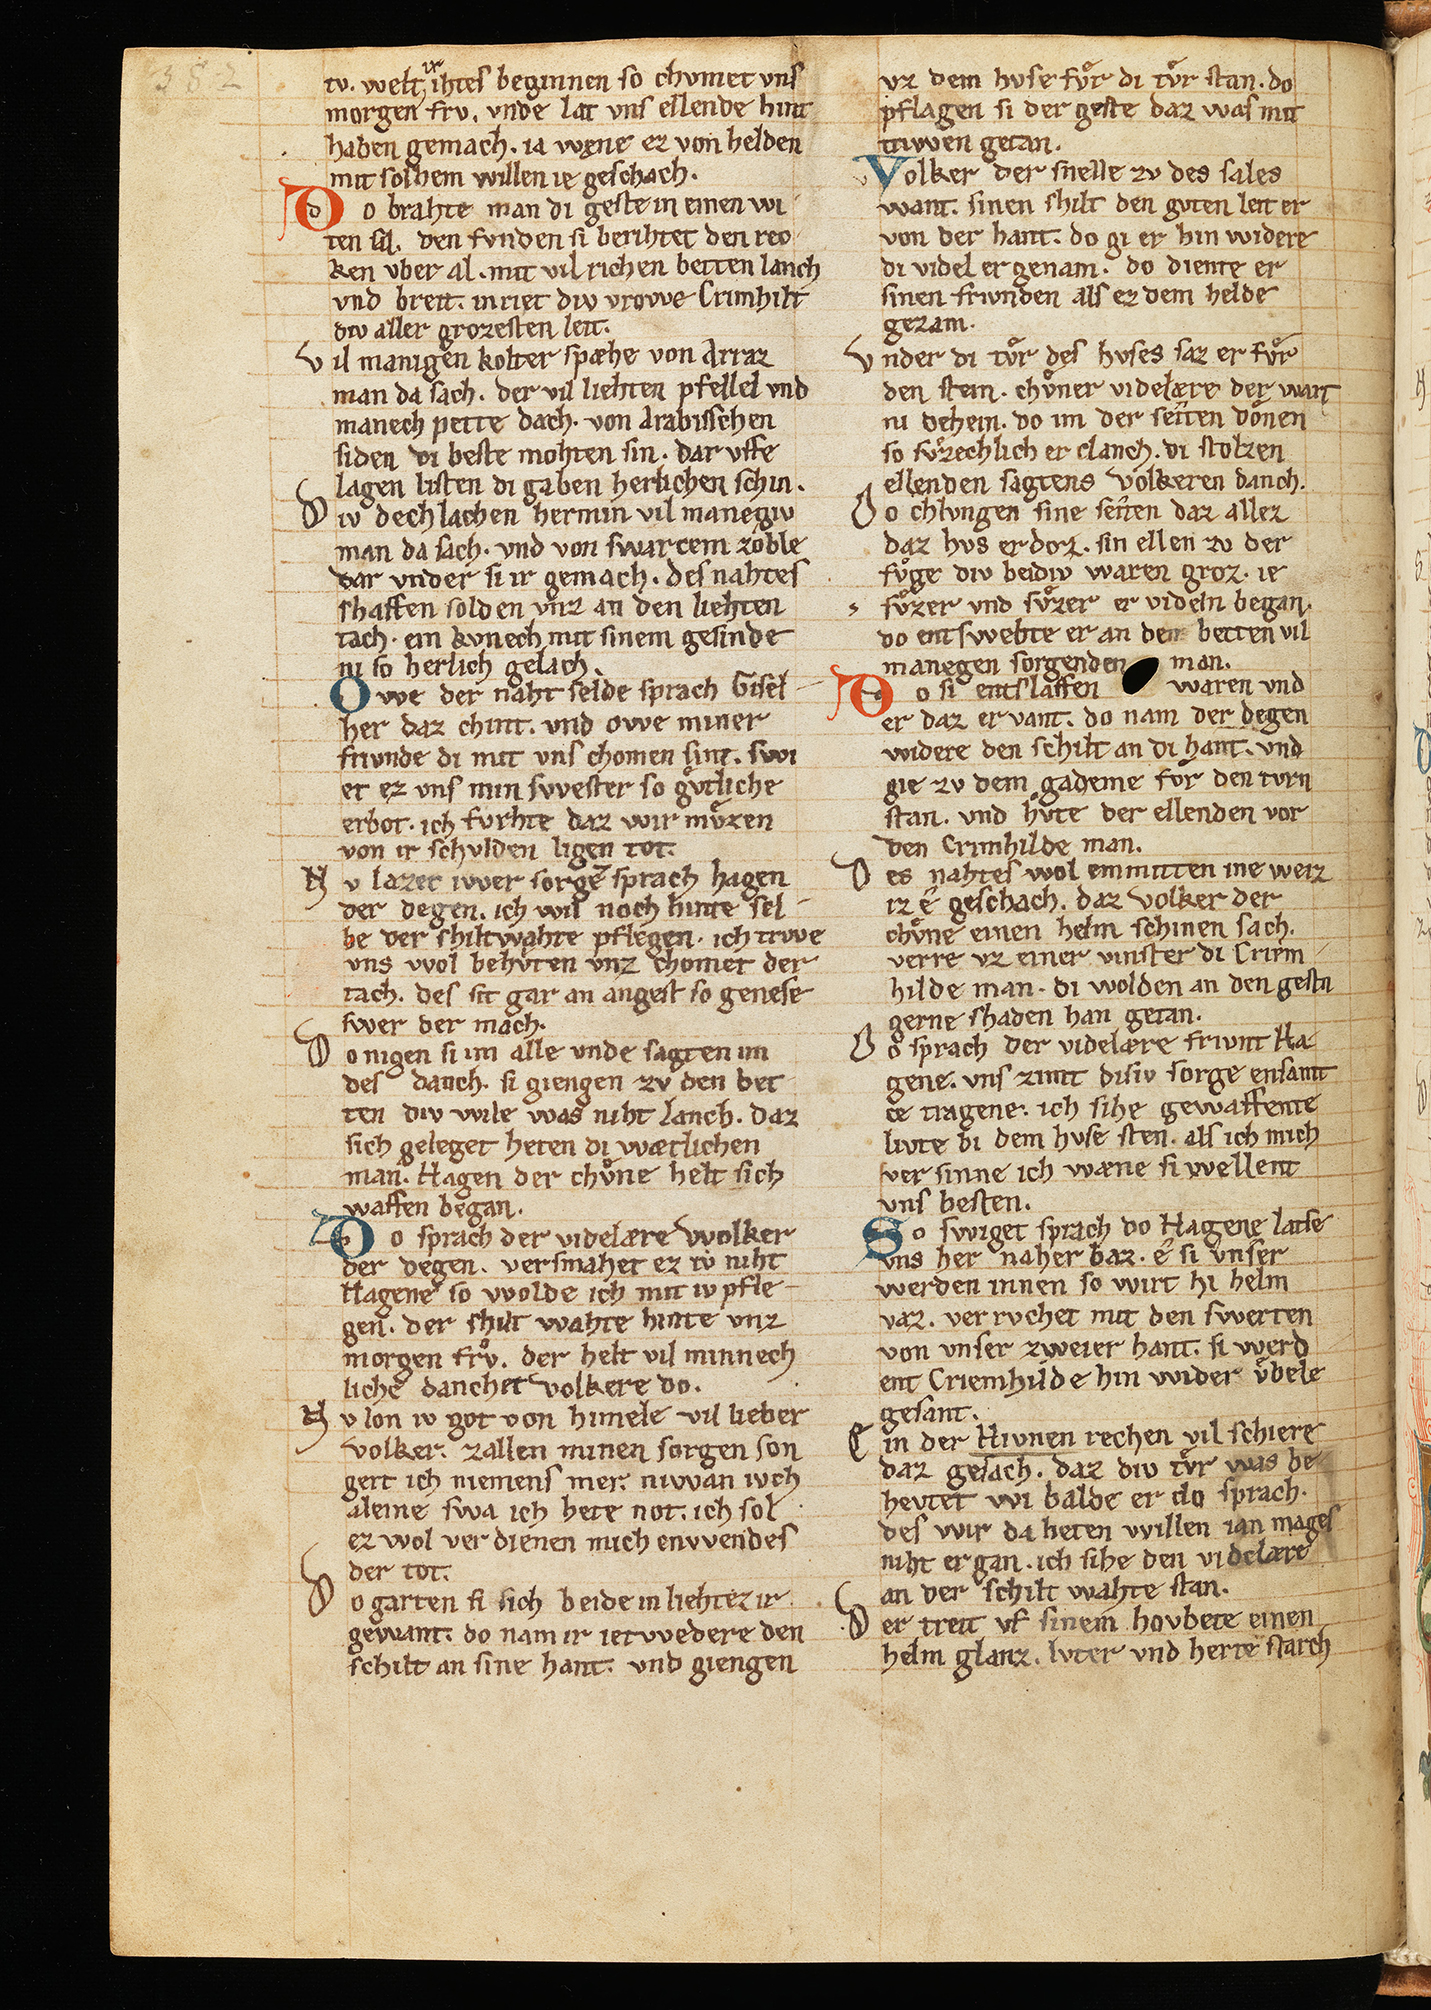 382
tv. welt ir ihtes beginnen so chvmet vns
morgen frv. vnde lat vns ellende hint
haben gemach. ia węne ez von helden
mit solhem willen ie geschach.
Do brahte man di geste in einen wi
ten sal. den fvnden si berihtet den rec
ken vber al. mit vil richen betten lanch
vnd breit. in riet div vrowe Crimhilt
div aller grozesten leit.
vil manigen kolter spæhe von Arraz
man da sach. der vil liehten pfellel vnd
manech pette dach. von Arabisschen
siden di beste mohten sin. dar vffe
lagen listen di gaben herlichen schin.
Div dechlachen hermin vil manegiv
man da sach. vnd von swarcem zoble
dar vnder si ir gemach. des nahtes
shaffen solden vnz an den liehten
tach. ein kvnech mit sinem gesinde
ni so herlich gelach.
Owe der naht selde sprach Gisel
her daz chint. vnd owe miner
frivnde di mit vns chomen sint. swi
et ez vns min swester so gv̊tliche
erbot. ich fvrhte daz wir mv̊zen
von ir schvlden ligen tot.
Nv lazet iwer sorgē sprach hagen
der degen. ich wil noch hinte sel
be der shiltwahte pflegen. ich trwe
vns wol behv̊ten vnz chomet der
tach. des sit gar an angest so genese
swer der mach.
Do nigen si im alle vnde sagten im
des danch. si giengen zv den bet
ten div wile was niht lanch. daz
sich geleget heten di wætlichen
man. Hagen der chv̊ne helt sich
waffen began.
Do sprach der videlære Wolker
der degen. versmahet ez iv niht
Hagene so wolde ich mit iv pfle
gen. der shilt wahte hinte vnz
morgen frv̊. der helt vil minnech
liche danchet volkere do.
Nv lon iv got von himele vil lieber
volker. zallen minen sorgen son
gert ich niemens mer. niwan iwch
aleine swa ich hete not. ich sol
ez wol verdienen mich enwendes
der tot.
Do garten si sich beide in liehtez ir
gewant. do nam ir ietwedere den
schilt an sine hant. vnd giengen
vz dem hvse fv̊r di tv̊r stan. do
pflagen si der geste daz was mit
triwen getan.
Volker der snelle zv des sales
want. sinen shilt den gvten leit er
von der hant. do gi er hin widere
di videl er genam. do diente er
sinen frivnden als ez dem helde
gezam.
vnder di tv̊r des hvses saz er fv̊r
den stein. chv̊ner videlære der wart
ni dehein. do im der seiten donen
so fv̊zechlich er clanch. di stolzen
ellenden sagtens volkeren danch.
Do chlvngen sine seiten daz allez
daz hvs erdoz. sin ellen zv der
fv̊ge div beidiv waren groz. ie
sv̊zer vnd sv̊zer er videln began.
do entswebte er an den betten vil
manegen sorgenden man.
Do si entslaffen waren vnd
er daz ervant. do nam der degen
widere den schilt an di hant. vnd
gie zv dem gademe fv̊r den tvrn
stan. vnd hv̊te der ellenden vor
den Crimhilde man.
Des nahtes wol enmitten ine weiz
iz é geschach. daz volker der
chv̊ne einen helm schinen sach.
verre vz einer vinster di Criem
hilde man. di wolden an den gestn
gerne shaden han getan.
Do sprach der videlære frivnt Ha
gene. vns zimt disiv sorge ensamt
ce tragene. ich sihe gewaffente
livte bi dem hvse sten. als ich mich
ver sinne ich wæne si wellent
vns besten.
So swiget sprach do Hagene latse
vns her naher baz. é si vnser
werden innen so wirt hi helm
vaz. ver rvchet mit den swerten
von vnser zweier hant. si werd
ent Criemhilde hin wider v̊bele
gesant.
Ein der Hivnen rechen vil schiere
daz gesach. daz div tv̊r was be
hevtet wi balde er do sprach.
des wir da heten willen ian mages
niht ergan. ich sihe den videlære
an der schilt wahte stan.
Der treit vf sinem hovbete einen
helm glanz. lvter vnd herte starch